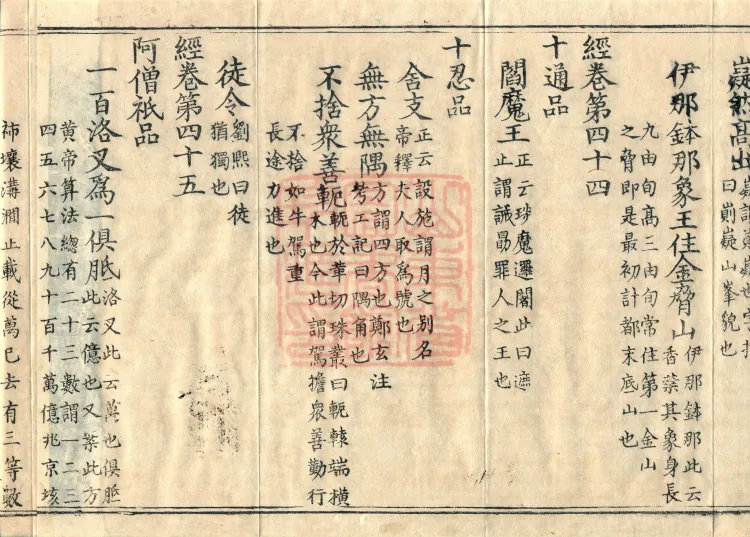 嶷然高出
曰崱嶷山峯貌也
伊那鉢那象王住金脅山
伊那鉢那此云
香葉其象身長
九由旬高三由旬常住第一金山
之脅即是最初計都末底山也
經卷第四十四
十通品
閻魔王
正云琰魔邏闍此曰遮
止謂誡勗罪人之王也
十忍品
舍支
正云設施謂月之别名
帝釋夫人取爲號也
無方無隅
方謂四方也鄭玄注
考工記曰隅角也
不捨衆善軛
軛於革切珠叢曰軛轅端橫
木也今此謂駕擔衆善勤行
不捨如牛駕重
長途力進也
徒令
劉熙曰徒
猶獨也
經卷第四十五
阿僧祇品
一百洛叉爲一俱胝
洛叉此云萬也俱胝
此云億也又案此方
黄帝算法總有二十三數謂一二三
四五六七八九十百千萬億兆京垓
秭壤溝澗正載從萬已去有三等數